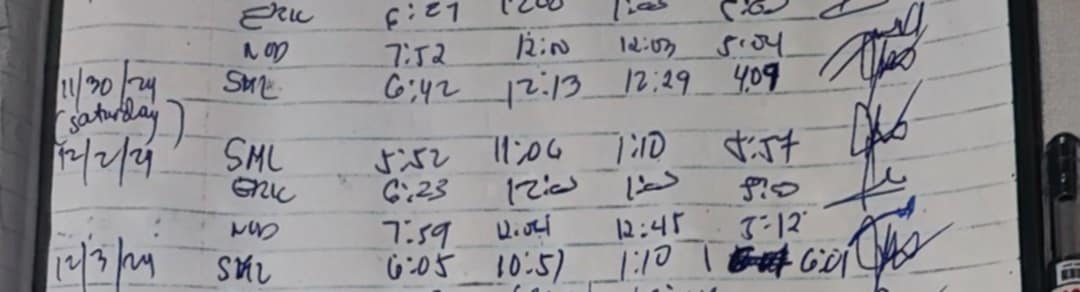 ERK 6:27 1200 1:00
NOD 7:52 12:00 12:03 5:04
11/30/24 SML 6:42 12:13 12:29 4:09
(Saturday)
12/2/24 SML 5:52 11:06 1:10 5:57
ERK 6:23 12:00 1:00 5:00
NOD 7:59 12:04 12:45 5:12
12/3/24 SML 6:05 10:51 1:10 6:01